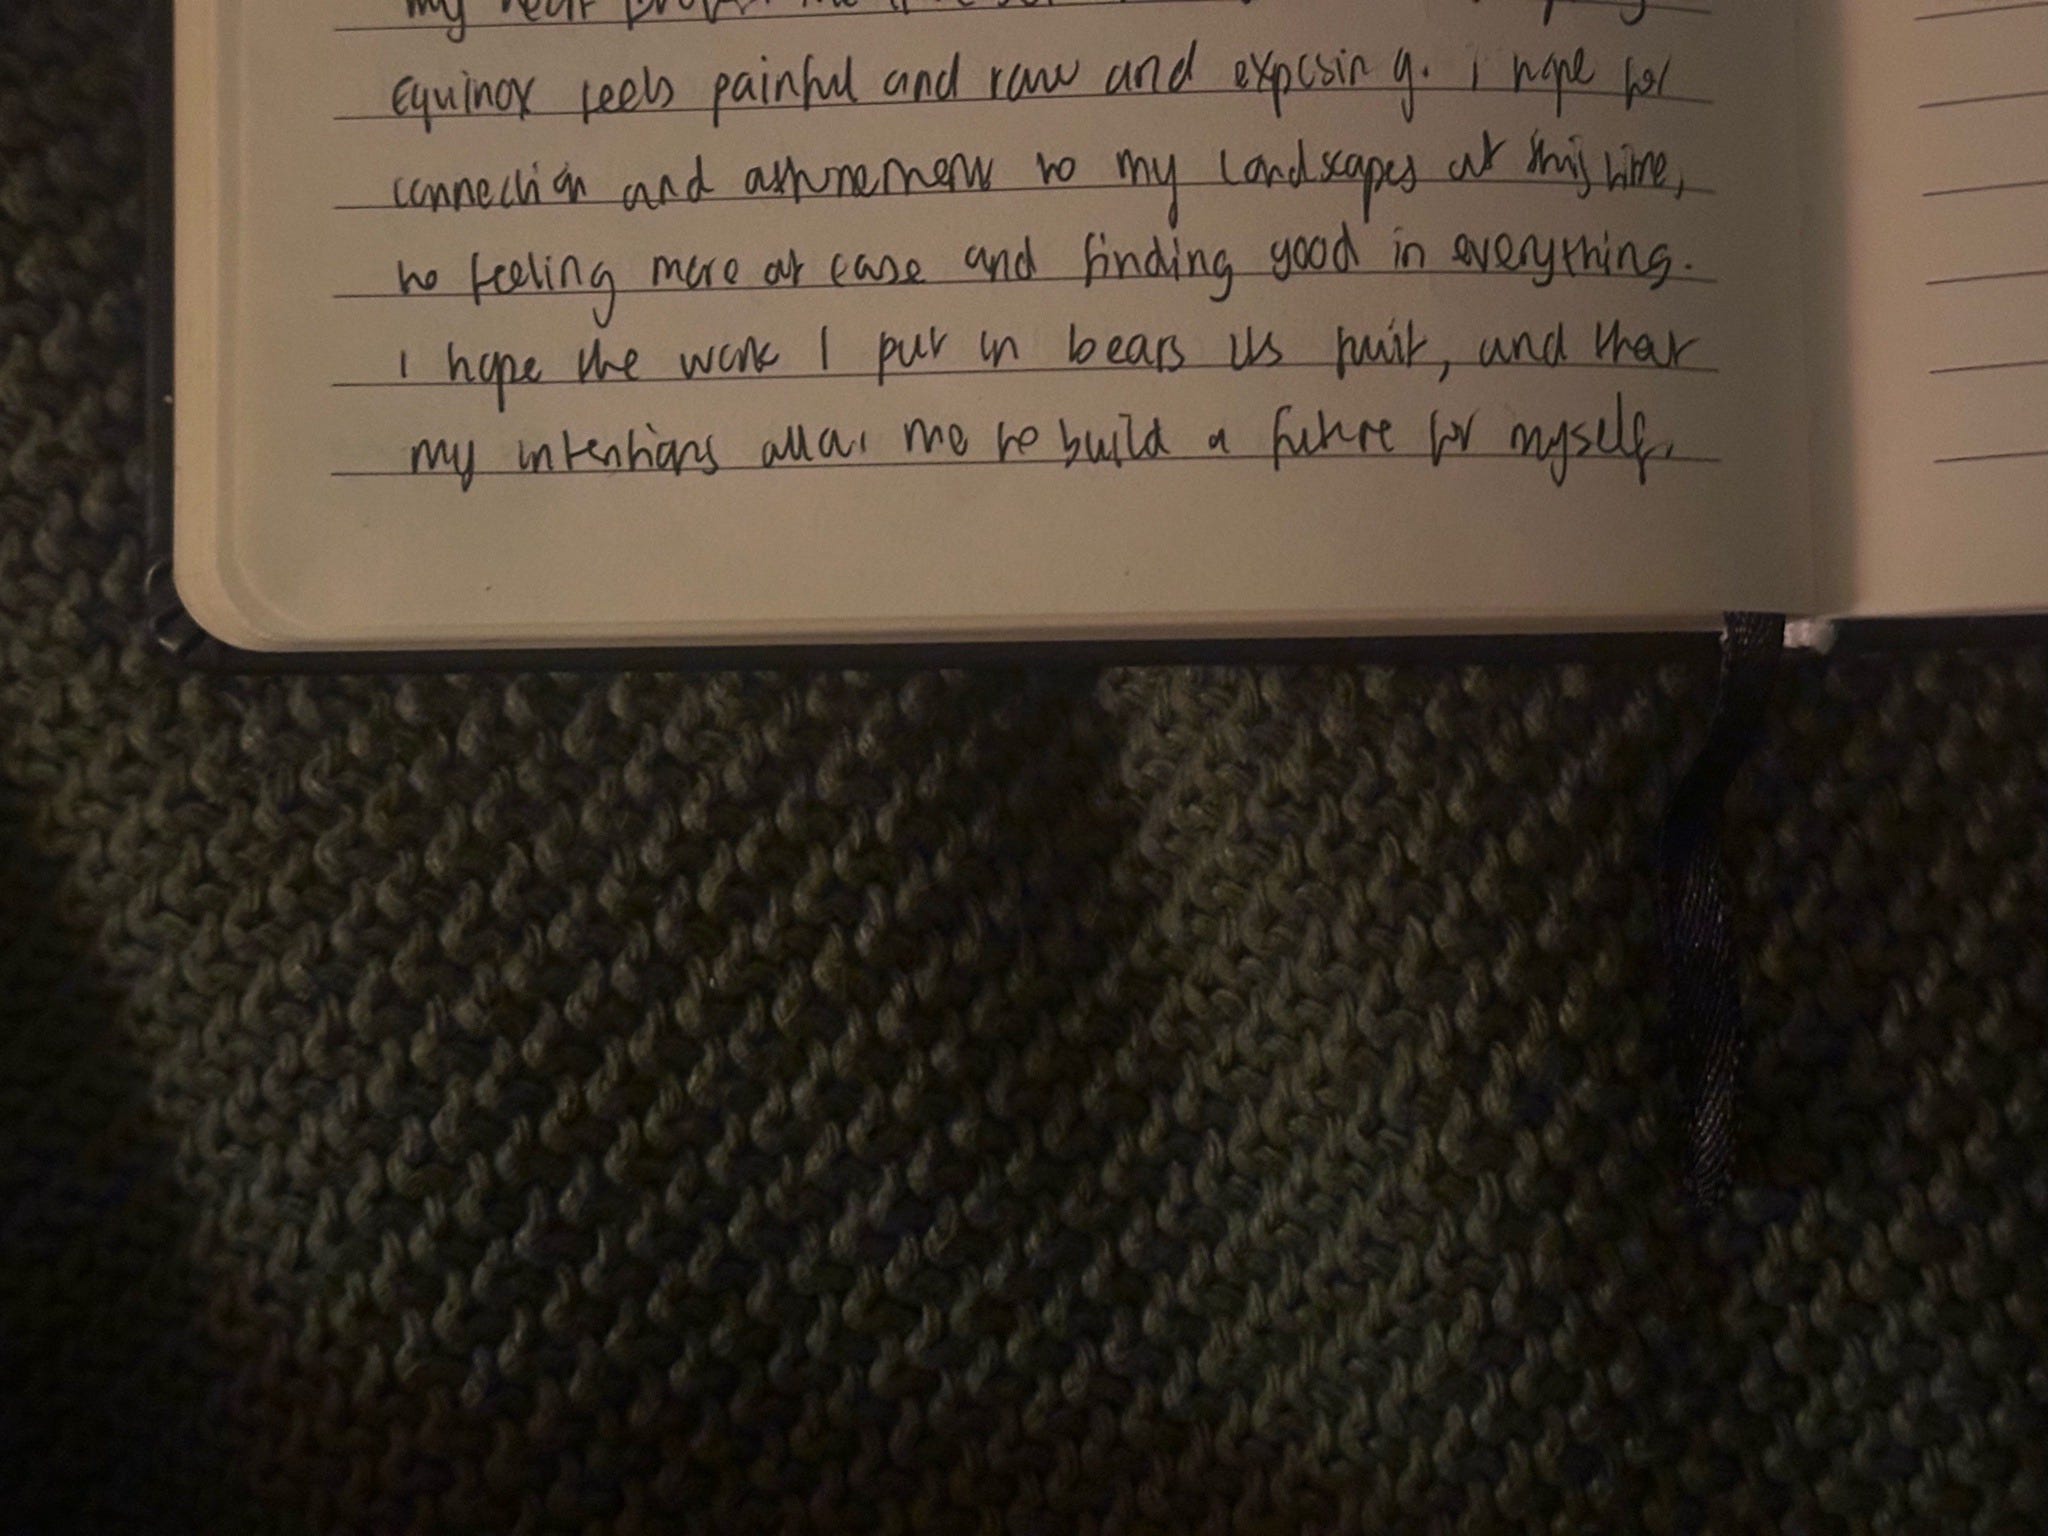 my
Equinox feels painful and raw and exposing. I hope for
connection and attunement to my landscapes at this time,
to feeling more at ease and finding good in everything.
I hope the work I put in bears its fruit, and that
my intentions allow me to build a future for myself.